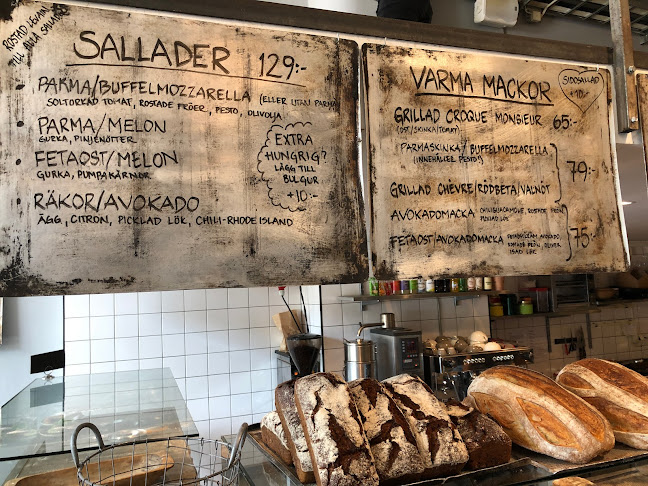 ROSTAD LEVAIN
TILL ALLA SALLADER
SALLADER 129:-
• PARMA/BUFFELMOZZARELLA (ELLER UTAN PARMA)
SOLTORKAD TOMAT, ROSTADE FRÖER, PESTO, OLIVOLJA
• PARMA/MELON
GURKA, PINJENÖTTER
• FETAOST/MELON
GURKA, PUMPAKÄRNOR
• RÄKOR/AVOKADO
ÄGG, CITRON, PICKLAD LÖK, CHILI-RHODE ISLAND
EXTRA
HUNGRIG?
LÄGG TILL
BULGUR
+10:-
VARMA MACKOR
SIDOSALLAD
+10:-
GRILLAD CROQUE MONSIEUR 65:-
(OST/SKINKA/TOMAT)
PARMASKINKA/BUFFELMOZZARELLA
(INNEHÅLLER PESTO!)
79:-
GRILLAD CHEVRE/RÖDBETA/VALNÖT
AVOKADOMACKA CHILIGUACAMOLE, ROSTADE FRÖN
PICKLAD LÖK
75:-
FETAOST/AVOKADOMACKA AVOKADO,
ROSTADE FRÖN, OLIVER
LÖK